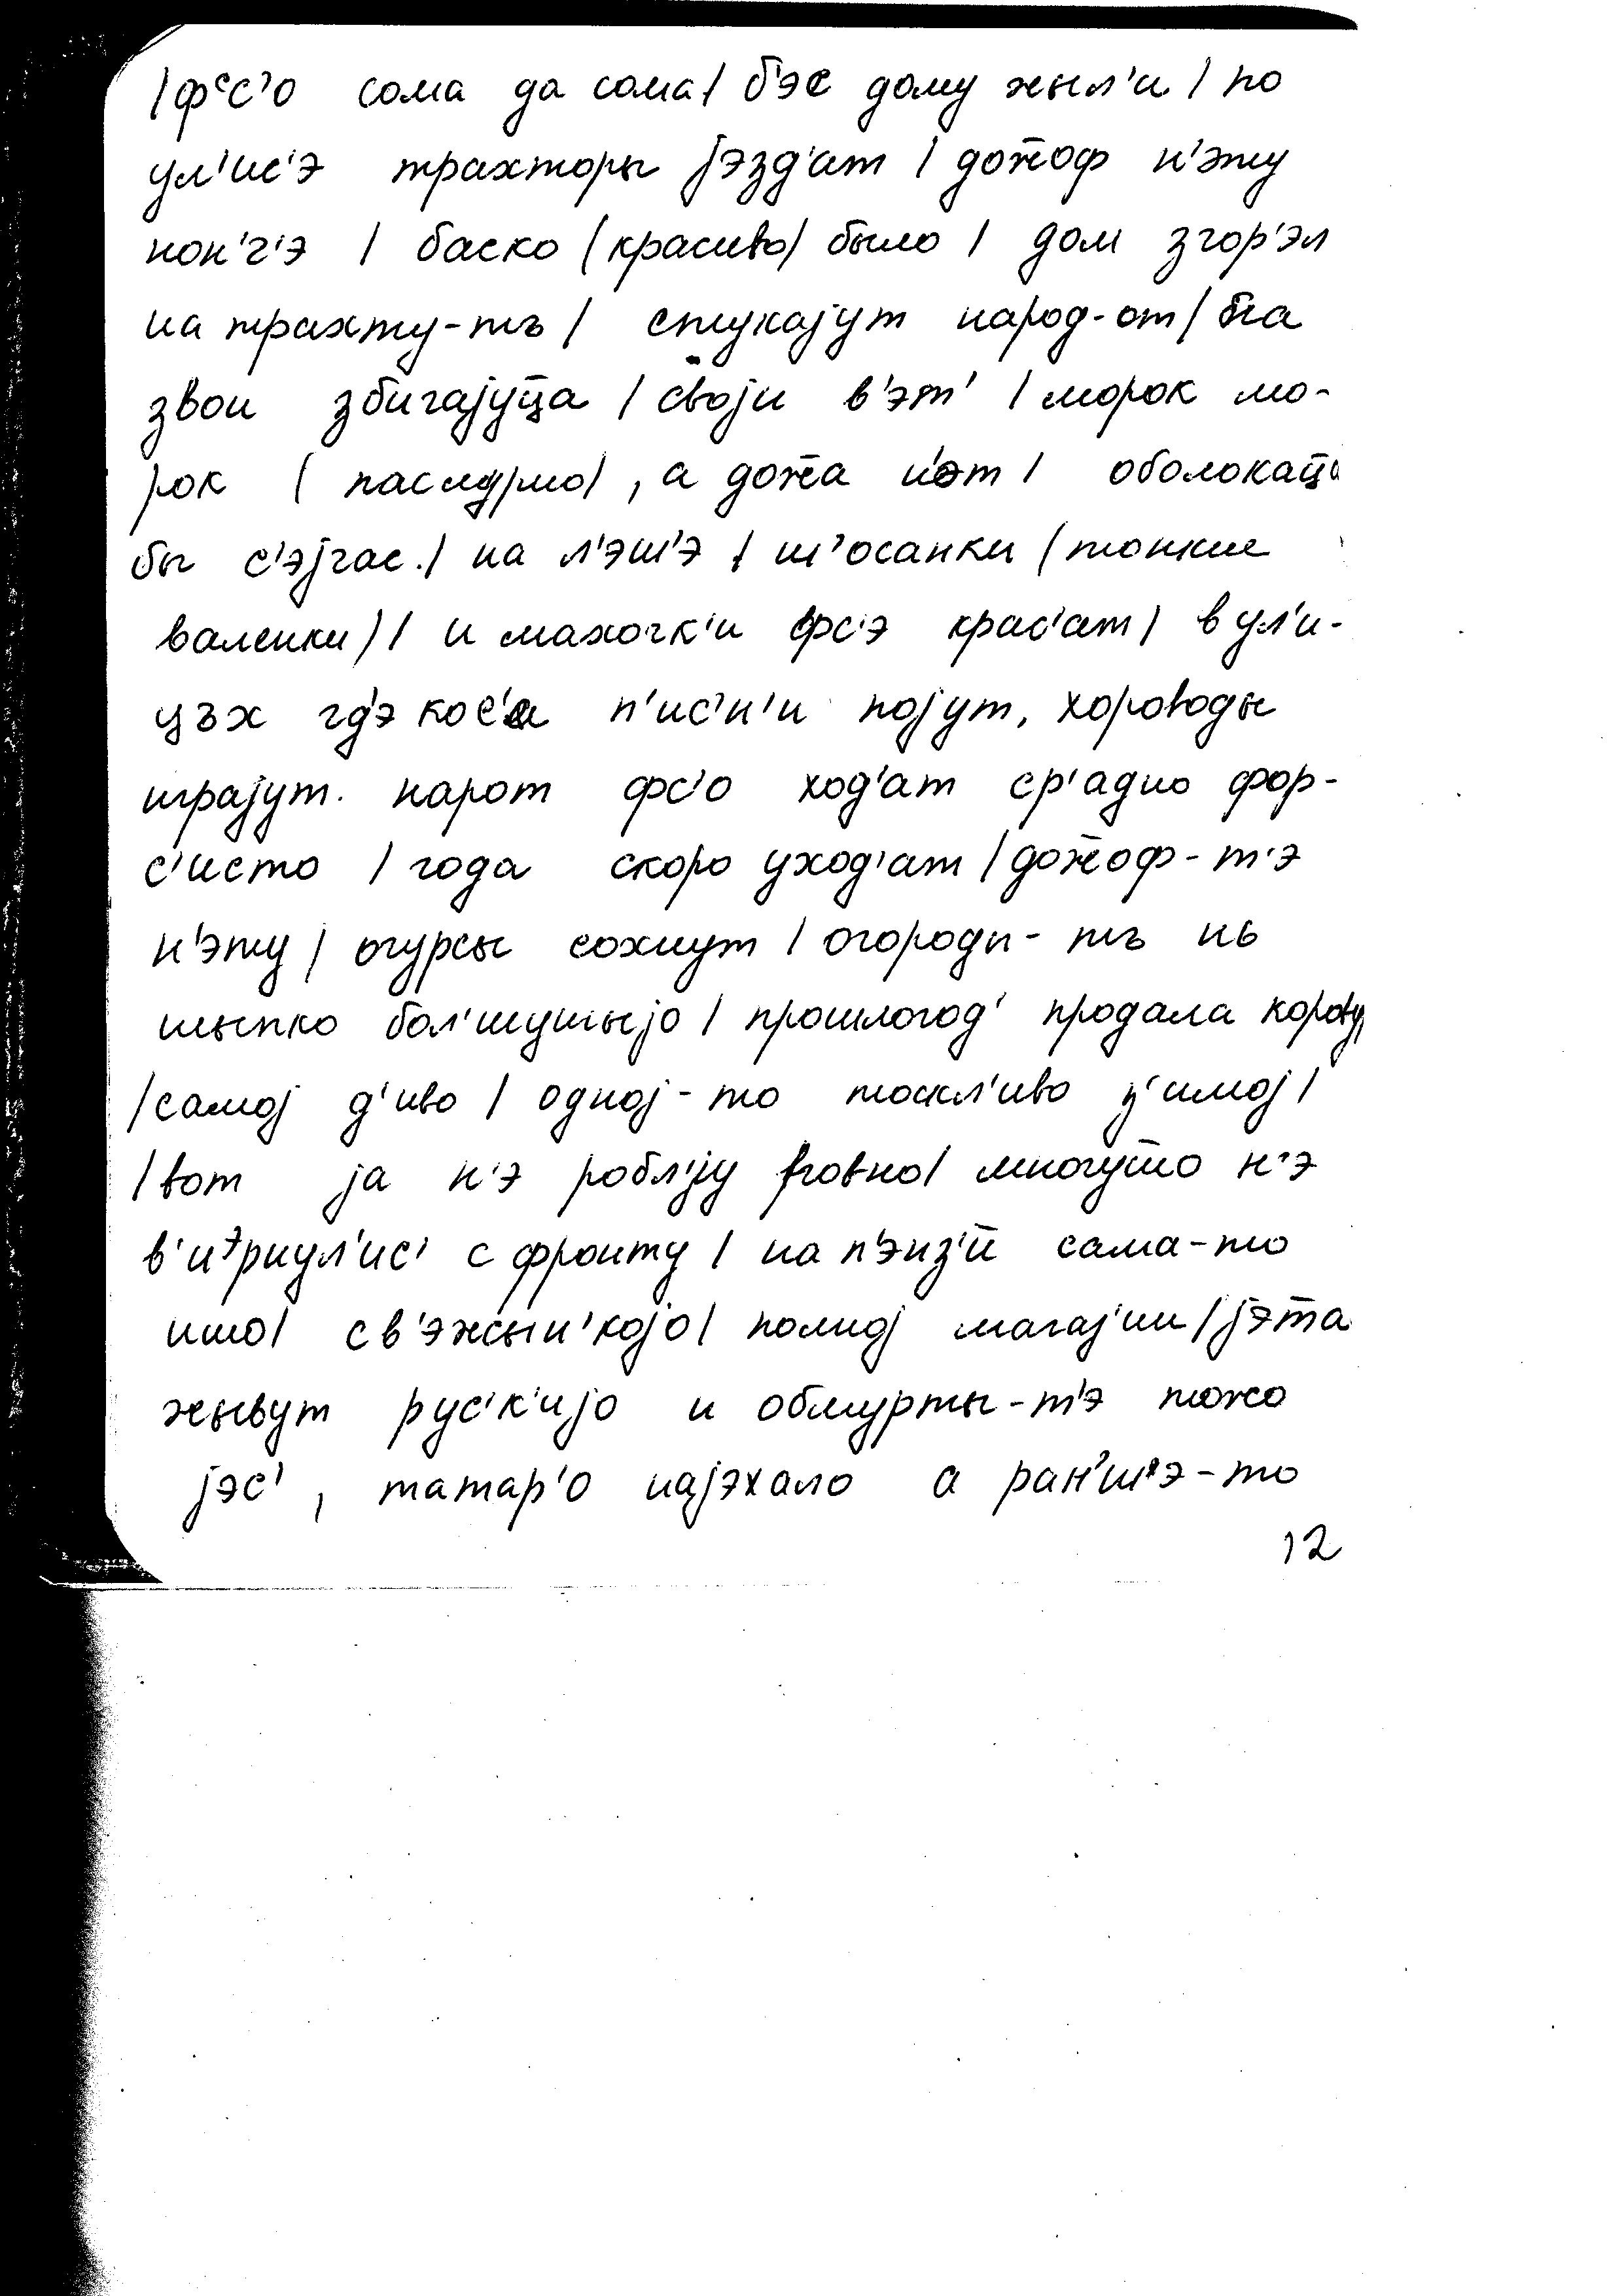 /фсс'о сома да сома/ б'эс дому жыл'и / по
ул'ис'э трахторы јэзд'ат / дож̅оф н'эту
нон'г'э / баско (красиво) было / дом згор'эл
на трахту-тъ / стукајут народ-от / на
звон збигајуц̅а / своји в'эт' / морок мо-
рок (пасмурно), а дож̅а н'эт / оболокац̅а
бы с'эјгас. / на л'эш'э / ш'осанки (тонкие
валенки) / и махочк'и фс'э крас'ат / в ул'и-
цъх гд'э кос'а п'ис'н'и појут, хороводы
играјут. нарот фс'о ход'ат ср'адно фор-
с'исто / года скоро уход'ат / дож̅оф-т'э
н'эту / огурсы сохнут / огороды-тъ нь
шыпко бол'шушыјо / прошлогод' продала корову
/ самој д'иво / одној-то тоскл'иво з'имој /
/ вот ја н'э робл'у ровно / многуто н'э
в'иэрнул'ис' с фронту / на п'энз'ий сама-то
ишо / св'эжын'којо / полној магаз'ин / јэта
жывут рус'к'ијо и обмурты-т'э тожо
јэс', татар'о најэхало а ран'ш'э-то
12